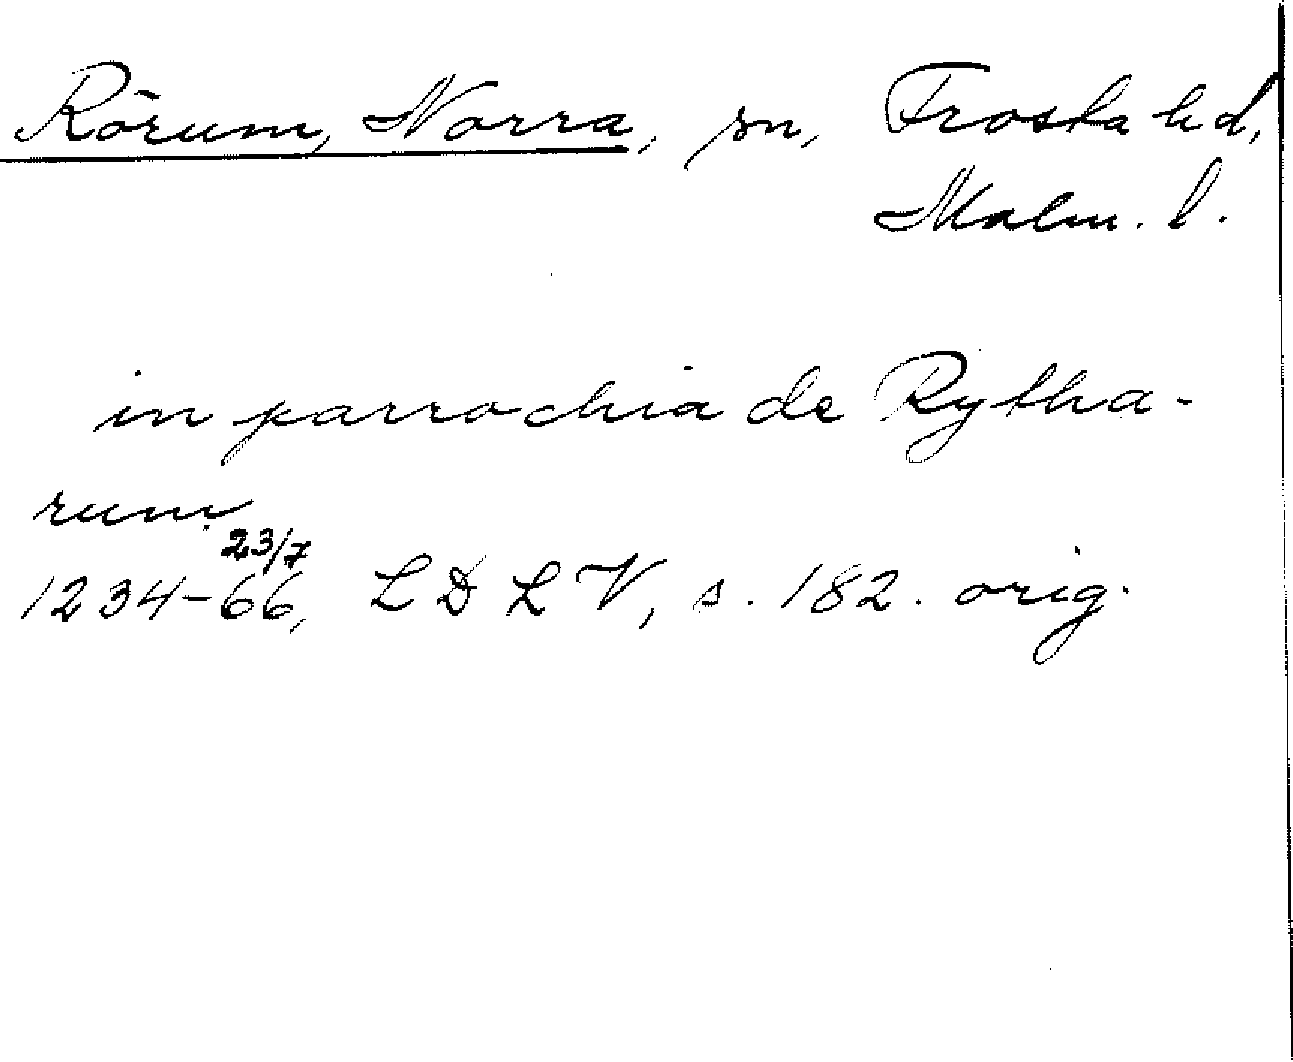 Rörum, Norra, sn, Frosta hd,
Malm. l.
in parrochia de Rytha-
rum
23/7
1234-66, LDLV, s. 182. orig.